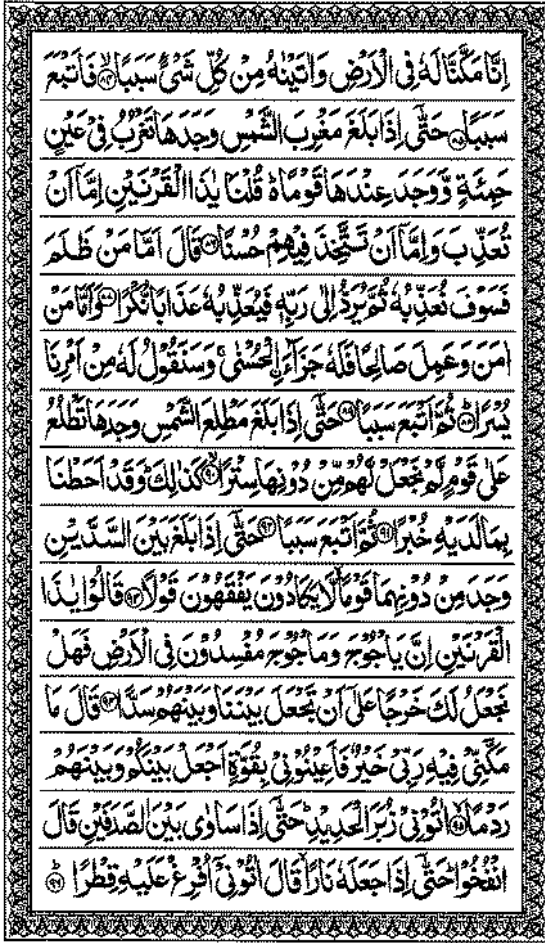 اِنَّا مَكَّنَّا لَهٗ فِی الْاَرْضِ وَاٰتَیْنٰهُ مِنْ كُلِّ شَیْءٍ سَبَبًا ﴿۸۴﴾ فَاَتْبَعَ
سَبَبًا ﴿۸۵﴾ حَتّٰۤی اِذَا بَلَغَ مَغْرِبَ الشَّمْسِ وَجَدَهَا تَغْرُبُ فِیْ عَیْنٍ
حَمِئَةٍ وَّوَجَدَ عِنْدَهَا قَوْمًا ۬ؕ قُلْنَا یٰذَا الْقَرْنَیْنِ اِمَّاۤ اَنْ
تُعَذِّبَ وَاِمَّاۤ اَنْ تَتَّخِذَ فِیْهِمْ حُسْنًا ﴿۸۶﴾ قَالَ اَمَّا مَنْ ظَلَمَ
فَسَوْفَ نُعَذِّبُهٗ ثُمَّ یُرَدُّ اِلٰی رَبِّهٖ فَیُعَذِّبُهٗ عَذَابًا نُّكْرًا ﴿۸۷﴾ وَاَمَّا مَنْ
اٰمَنَ وَعَمِلَ صَالِحًا فَلَهٗ جَزَآءَ ࣙالْحُسْنٰی ۚ وَسَنَقُوْلُ لَهٗ مِنْ اَمْرِنَا
یُسْرًا ﴿۸۸﴾ ثُمَّ اَتْبَعَ سَبَبًا ﴿۸۹﴾ حَتّٰۤی اِذَا بَلَغَ مَطْلِعَ الشَّمْسِ وَجَدَهَا تَطْلُعُ
عَلٰی قَوْمٍ لَّمْ نَجْعَلْ لَّهُمْ مِّنْ دُوْنِهَا سِتْرًا ﴿۹۰﴾ كَذٰلِكَ ؕ وَقَدْ اَحَطْنَا
بِمَا لَدَیْهِ خُبْرًا ﴿۹۱﴾ ثُمَّ اَتْبَعَ سَبَبًا ﴿۹۲﴾ حَتّٰۤی اِذَا بَلَغَ بَیْنَ السَّدَّیْنِ
وَجَدَ مِنْ دُوْنِهِمَا قَوْمًا ۙ لَّا یَكَادُوْنَ یَفْقَهُوْنَ قَوْلًا ﴿۹۳﴾ قَالُوْا یٰذَا
الْقَرْنَیْنِ اِنَّ یَاْجُوْجَ وَمَاْجُوْجَ مُفْسِدُوْنَ فِی الْاَرْضِ فَهَلْ
نَجْعَلُ لَكَ خَرْجًا عَلٰۤی اَنْ تَجْعَلَ بَیْنَنَا وَبَیْنَهُمْ سَدًّا ﴿۹۴﴾ قَالَ مَا
مَكَّنِّیْ فِیْهِ رَبِّیْ خَیْرٌ فَاَعِیْنُوْنِیْ بِقُوَّةٍ اَجْعَلْ بَیْنَكُمْ وَبَیْنَهُمْ
رَدْمًا ﴿۹۵﴾ اٰتُوْنِیْ زُبَرَ الْحَدِیْدِ ؕ حَتّٰۤی اِذَا سَاوٰی بَیْنَ الصَّدَفَیْنِ قَالَ
انْفُخُوْا ؕ حَتّٰۤی اِذَا جَعَلَهٗ نَارًا ۙ قَالَ اٰتُوْنِیْۤ اُفْرِغْ عَلَیْهِ قِطْرًا ﴿۹۶﴾